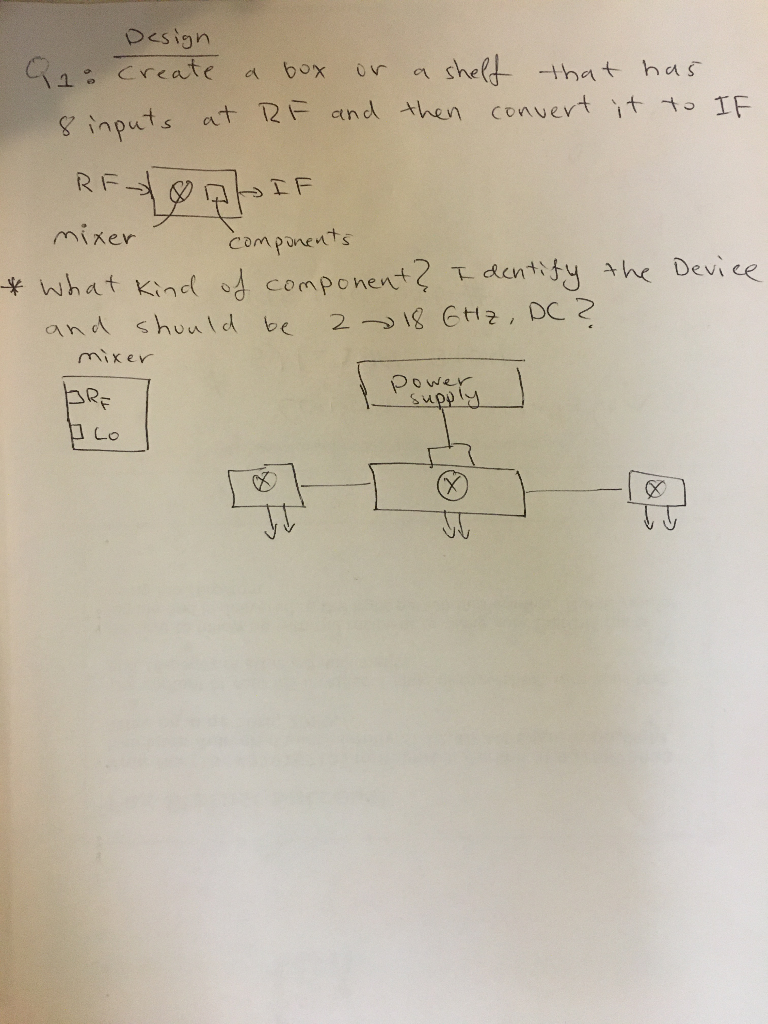 Design
Q1: create a box or a shelf that has
8 inputs at RF and then convert it to IF
RF → ⊗ → IF
mixer components
* What kind of component? Identify the Device
and should be 2 → 18 GHz, DC?
mixer
RF
LO
Power
supply